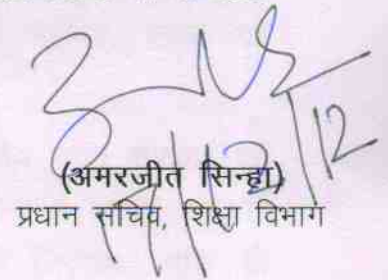 (अमरजीत सिन्हा)
प्रधान सचिव, शिक्षा विभाग